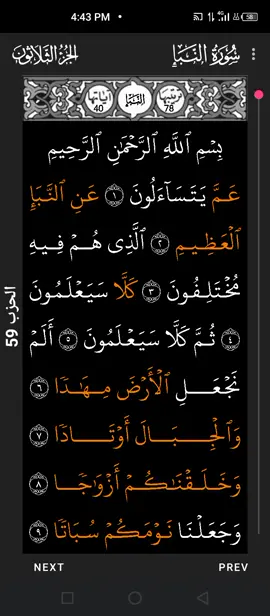 4:43 PM
4G
58
سُورَةُ النَّبَإِ
الجُزْءُ الثَّلَاثُونَ
ترتيبها 78
النَّبَإِ
آياتها 40
بِسْمِ ٱللَّهِ ٱلرَّحْمَٰنِ ٱلرَّحِيمِ
عَمَّ يَتَسَآءَلُونَ ١ عَنِ ٱلنَّبَإِ
ٱلْعَظِيمِ ٢ ٱلَّذِى هُمْ فِيهِ
مُخْتَلِفُونَ ٣ كَلَّا سَيَعْلَمُونَ
٤ ثُمَّ كَلَّا سَيَعْلَمُونَ ٥ أَلَمْ
نَجْعَلِ ٱلْأَرْضَ مِهَٰدًا ٦
وَٱلْجِبَالَ أَوْتَادًا ٧
وَخَلَقْنَٰكُمْ أَزْوَٰجًا ٨
وَجَعَلْنَا نَوْمَكُمْ سُبَاتًا ٩
الحزب 59
NEXT
PREV